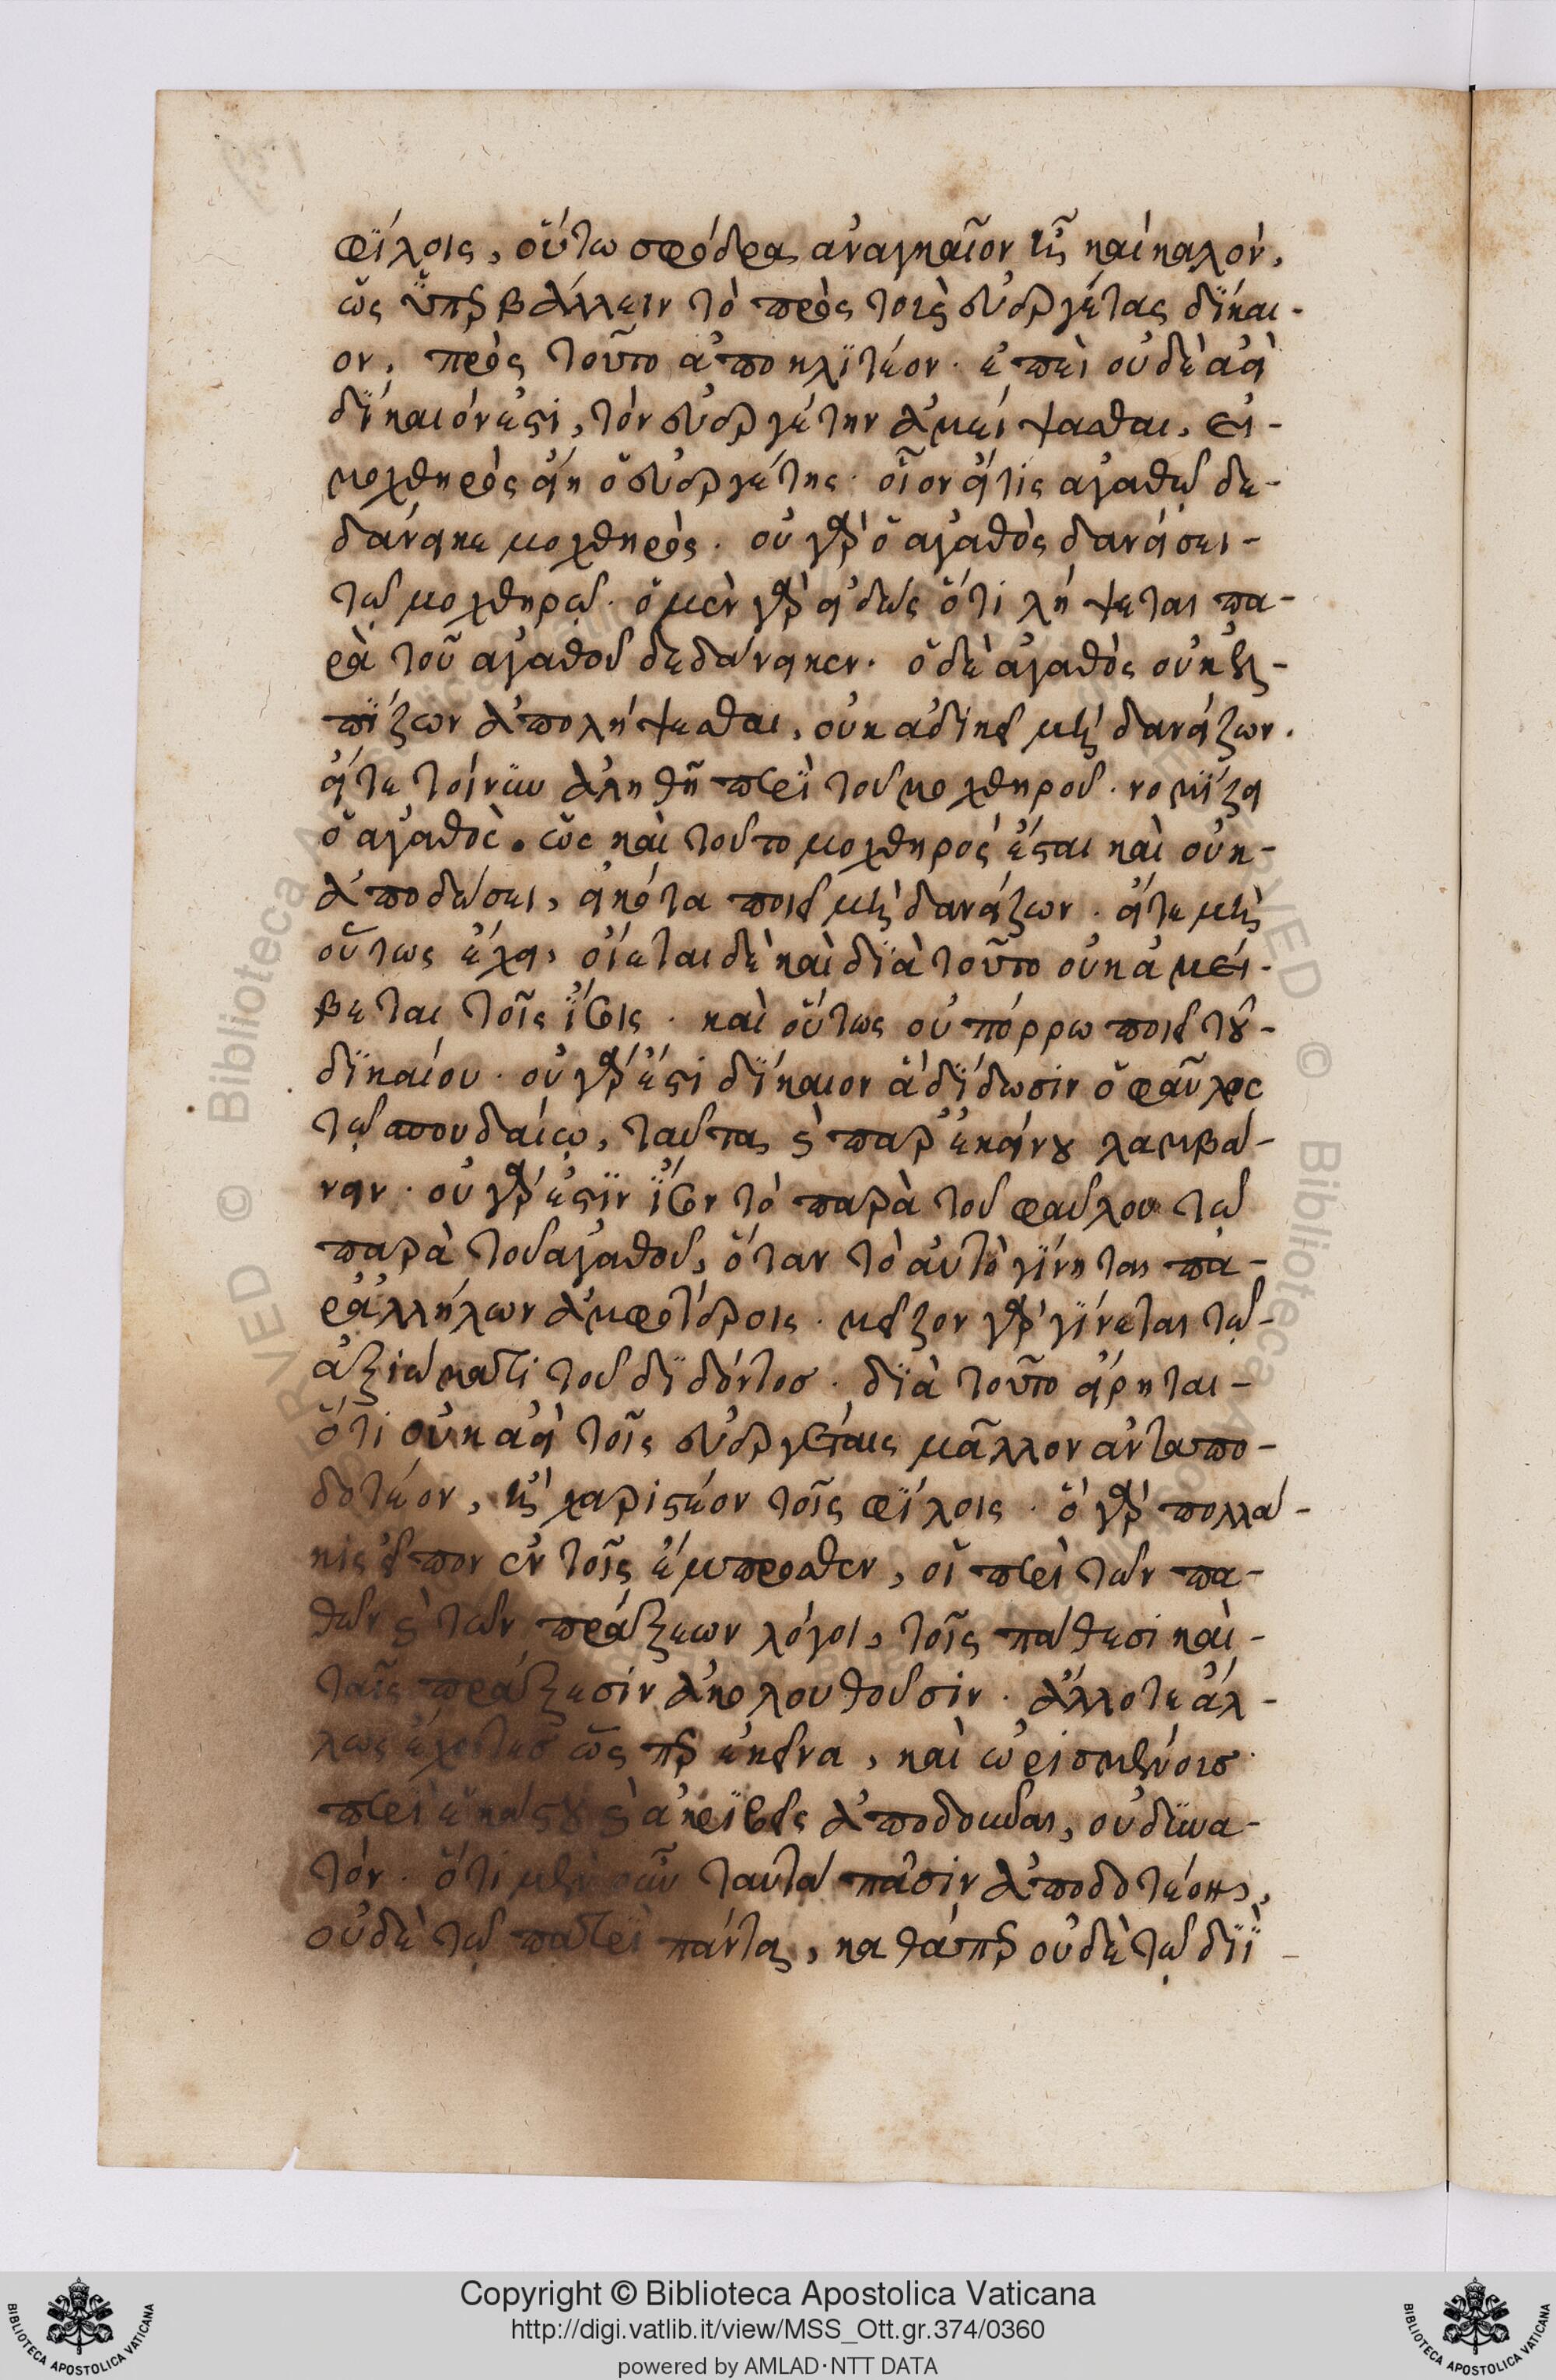 φίλοις, οὕτω σφόδρα ἀναγκαῖον ἢ καὶ καλόν,
ὡς ὑπερβάλλειν τὸ πρὸς τοὺς εὐεργέτας δίκαι-
ον, πρὸς τοῦτο ἀποκλιτέον. ἐπεὶ οὐδὲ ἀεὶ
δίκαιόν ἐστι, τὸν εὐεργέτην ἀμείψασθαι, εἰ-
μοχθηρὸς εἴη ὁ εὐεργέτης. οἷον εἴ τις ἀγαθῷ δε-
δάνεικε μοχθηρός. οὐ γὰρ ὁ ἀγαθὸς δανείσει-
τῷ μοχθηρῷ. ὁ μὲν γὰρ εἰδὼς ὅτι λήψεται πα-
ρὰ τοῦ ἀγαθοῦ δεδάνεικεν. ὁ δὲ ἀγαθὸς οὐκ ἐλ-
πίζων ἀπολήψεσθαι, οὐκ ἀδικεῖ μὴ δανείζων.
εἴτε τοίνυν ἀληθῆ περὶ τοῦ μοχθηροῦ. νομίζει
ὁ ἀγαθός. ὡς καὶ τοῦτο μοχθηρός ἐσται καὶ οὐκ-
ἀποδώσει, εἰκότα ποιεῖ μὴ δανείζων. εἴτε μὴ
οὕτως ἔχει, οἴεται δὲ καὶ διὰ τοῦτο οὐκ ἀμεί-
βεται τοῖς ἴσοις. καὶ οὕτως οὐ πόρρω ποιεῖ τοῦ-
δικαίου. οὐ γάρ ἐστι δίκαιον ἃ δίδωσιν ὁ φαῦλος
τῷ σπουδαίῳ, ταῦτα καὶ παρ' ἐκείνου λαμβά-
νειν. οὐ γάρ ἐστιν ἴσον τὸ παρὰ τοῦ φαύλου τῷ
παρὰ τοῦ ἀγαθοῦ, ὅταν τὸ αὐτὸ γίνηται πα-
ρ' ἀλλήλων ἀμφοτέροις. μεῖζον γὰρ γίνεται τῷ-
ἀξιώματι τοῦ διδόντος. διὰ τοῦτο εἴρηται-
ὅτι οὐκ ἀεὶ τοῖς εὐεργέταις μᾶλλον ἀνταπο-
δοτέον, ἢ χαριστέον τοῖς φίλοις. ὃ γὰρ πολλά-
κις εἶπον ἐν τοῖς ἔμπροσθεν, οἱ περὶ τῶν πα-
θῶν καὶ τῶν πράξεων λόγοι, τοῖς πάθεσι καὶ-
ταῖς πράξεσιν ἀκολουθοῦσιν. ἄλλοτε ἄλ-
λως ἔχοντες ὥσπερ ἐκεῖνα, καὶ ὡρισμένοις
περὶ ἑκάστου καὶ ἀκριβεῖς ἀποδοῦναι, οὐ δυνα-
τόν. ὅτι μὲν οὖν ταὐτὰ πᾶσιν ἀποδοτέον,
οὐδὲ τῷ πατρὶ πάντα, καθάπερ οὐδὲ τῷ διῒ-
Copyright © Biblioteca Apostolica Vaticana
http://digi.vatlib.it/view/MSS_Ott.gr.374/0360
powered by AMLAD·NTT DATA